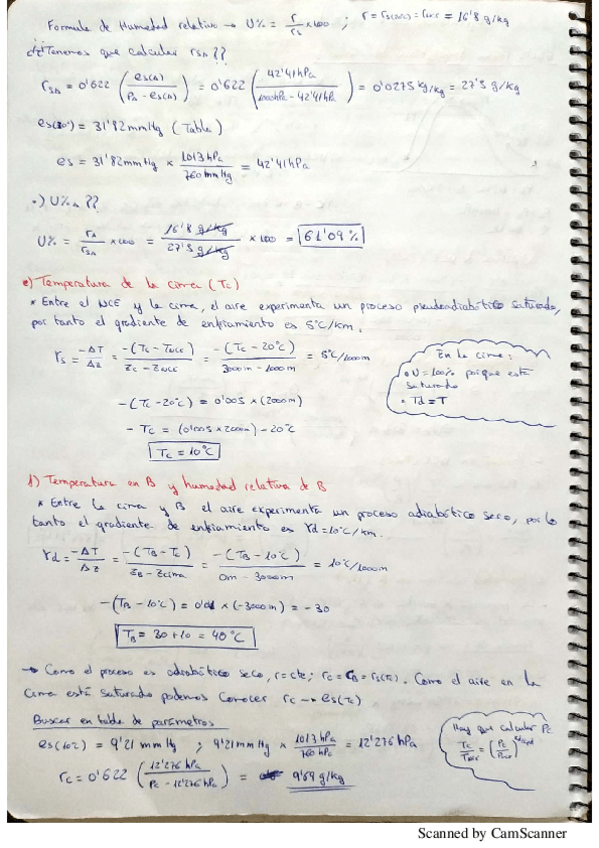 Formula de Humedad relativa → U% = r/rs × 100 ; r = rs(NCE) = rNCE = 16'8 g/kg
Tenemos que calcular rSA ??
rSA = 0'622 (es(A) / PA - es(A)) = 0'622 (42'41hPa / 1000hPa - 42'41hPa) = 0'0275 kg/kg = 27'5 g/kg
es(30º) = 31'82 mmHg (Tabla)
es = 31'82mmHg × 1013 hPa / 760 mmHg = 42'41hPa
•) U%A ??
U% = rA / rSA × 100 = 16'8 g/kg / 27'5 g/kg × 100 = 61'09 %
e) Temperatura de la cima (Tc)
* Entre el NCE y la cima, el aire experimenta un proceso pseudoadiabático saturado,
por tanto el gradiente de enfriamiento es 5ºC/km.
En la cima:
• U = 100% porque está
saturado
• Td = T
rs = -ΔT / ΔZ = -(Tc - TNCE) / Zc - ZNCE = -(Tc - 20ºC) / 3000m - 1000m = 5ºC/1000m
-(Tc - 20ºC) = 0'005 × (2000m)
- Tc = (0'005 × 2000m) - 20ºC
Tc = 10ºC
f) Temperatura en B y humedad relativa de B
* Entre la cima y B el aire experimenta un proceso adiabático seco, por lo
tanto el gradiente de enfriamiento es γd = 10ºC/km.
γd = -ΔT / ΔZ = -(TB - Tc) / ZB - Zcima = -(TB - 10ºC) / 0m - 3000m = 10ºC/1000m
-(TB - 10ºC) = 0'01 × (-3000m) = -30
TB = 30 + 10 = 40ºC
→ Como el proceso es adiabático seco, r = cte; rc = rB = rs(Tc). Como el aire en la
cima está saturado podemos conocer rc → es(Tc)
Buscar en tabla de parámetros
Hay que calcular Pc
Tc / TNCE = (Pc / PNCE)
es(10º) = 9'21 mmHg ; 9'21 mmHg × 1013 hPa / 760 hPa = 12'276 hPa
rc = 0'622 (12'276 hPa / Pc - 12'276 hPa) = 9'69 g/kg
Scanned by CamScanner